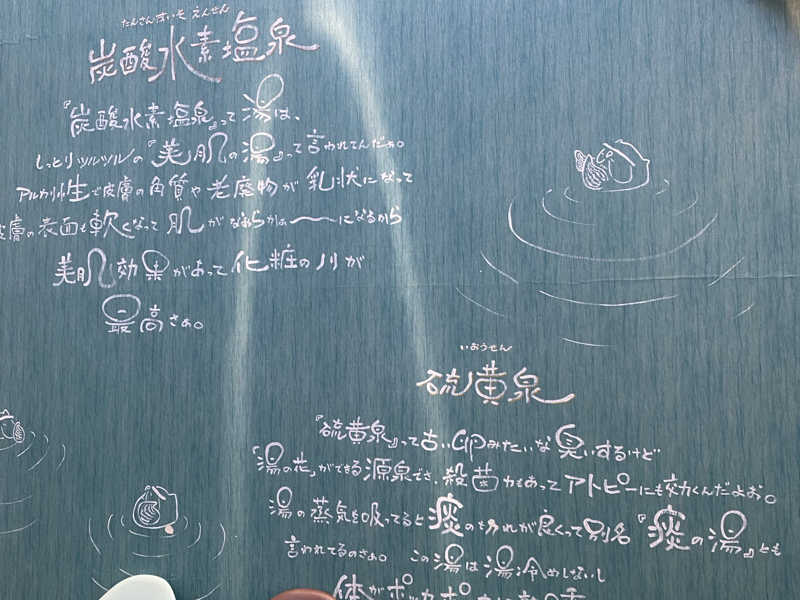 たんさんすいそ えんせん
炭酸水素塩泉
『炭酸水素塩泉』って湯は、
しっとりツルツルの『美肌の湯』って言われてんだぁ。
アルカリ性で皮膚の角質や老廃物が乳状になって
皮膚の表面も軟くなって肌がなめらかぁ〜になるから
美肌効果があって化粧のノリが
最高さぁ。
いおうせん
硫黄泉
『硫黄泉』って古い卵みたいな臭いするけど
「湯の花」ができる源泉でさ、殺菌力もあってアトピーにも効くんだよお。
湯の蒸気を吸ってると痰の切れが良くって別名『痰の湯』とも
言われてるのさぁ。この湯は湯冷めしないし
体がポッカポ